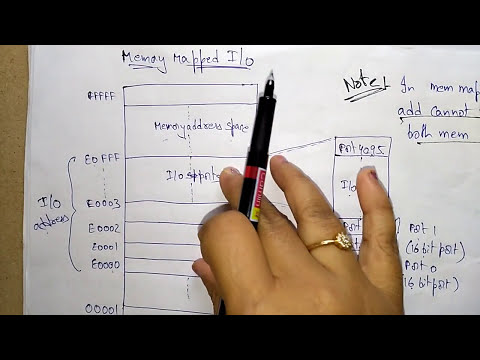 Memory Mapped I/O
Note!
In mem map
add cannot
both mem
FFFFF
Memory address space
Port 4095
E0FFF
I/O
I/O
address
E0003
E0002
Port 1
(16 bit port)
E0001
Port 0
E0000
(16 bit port)
00001